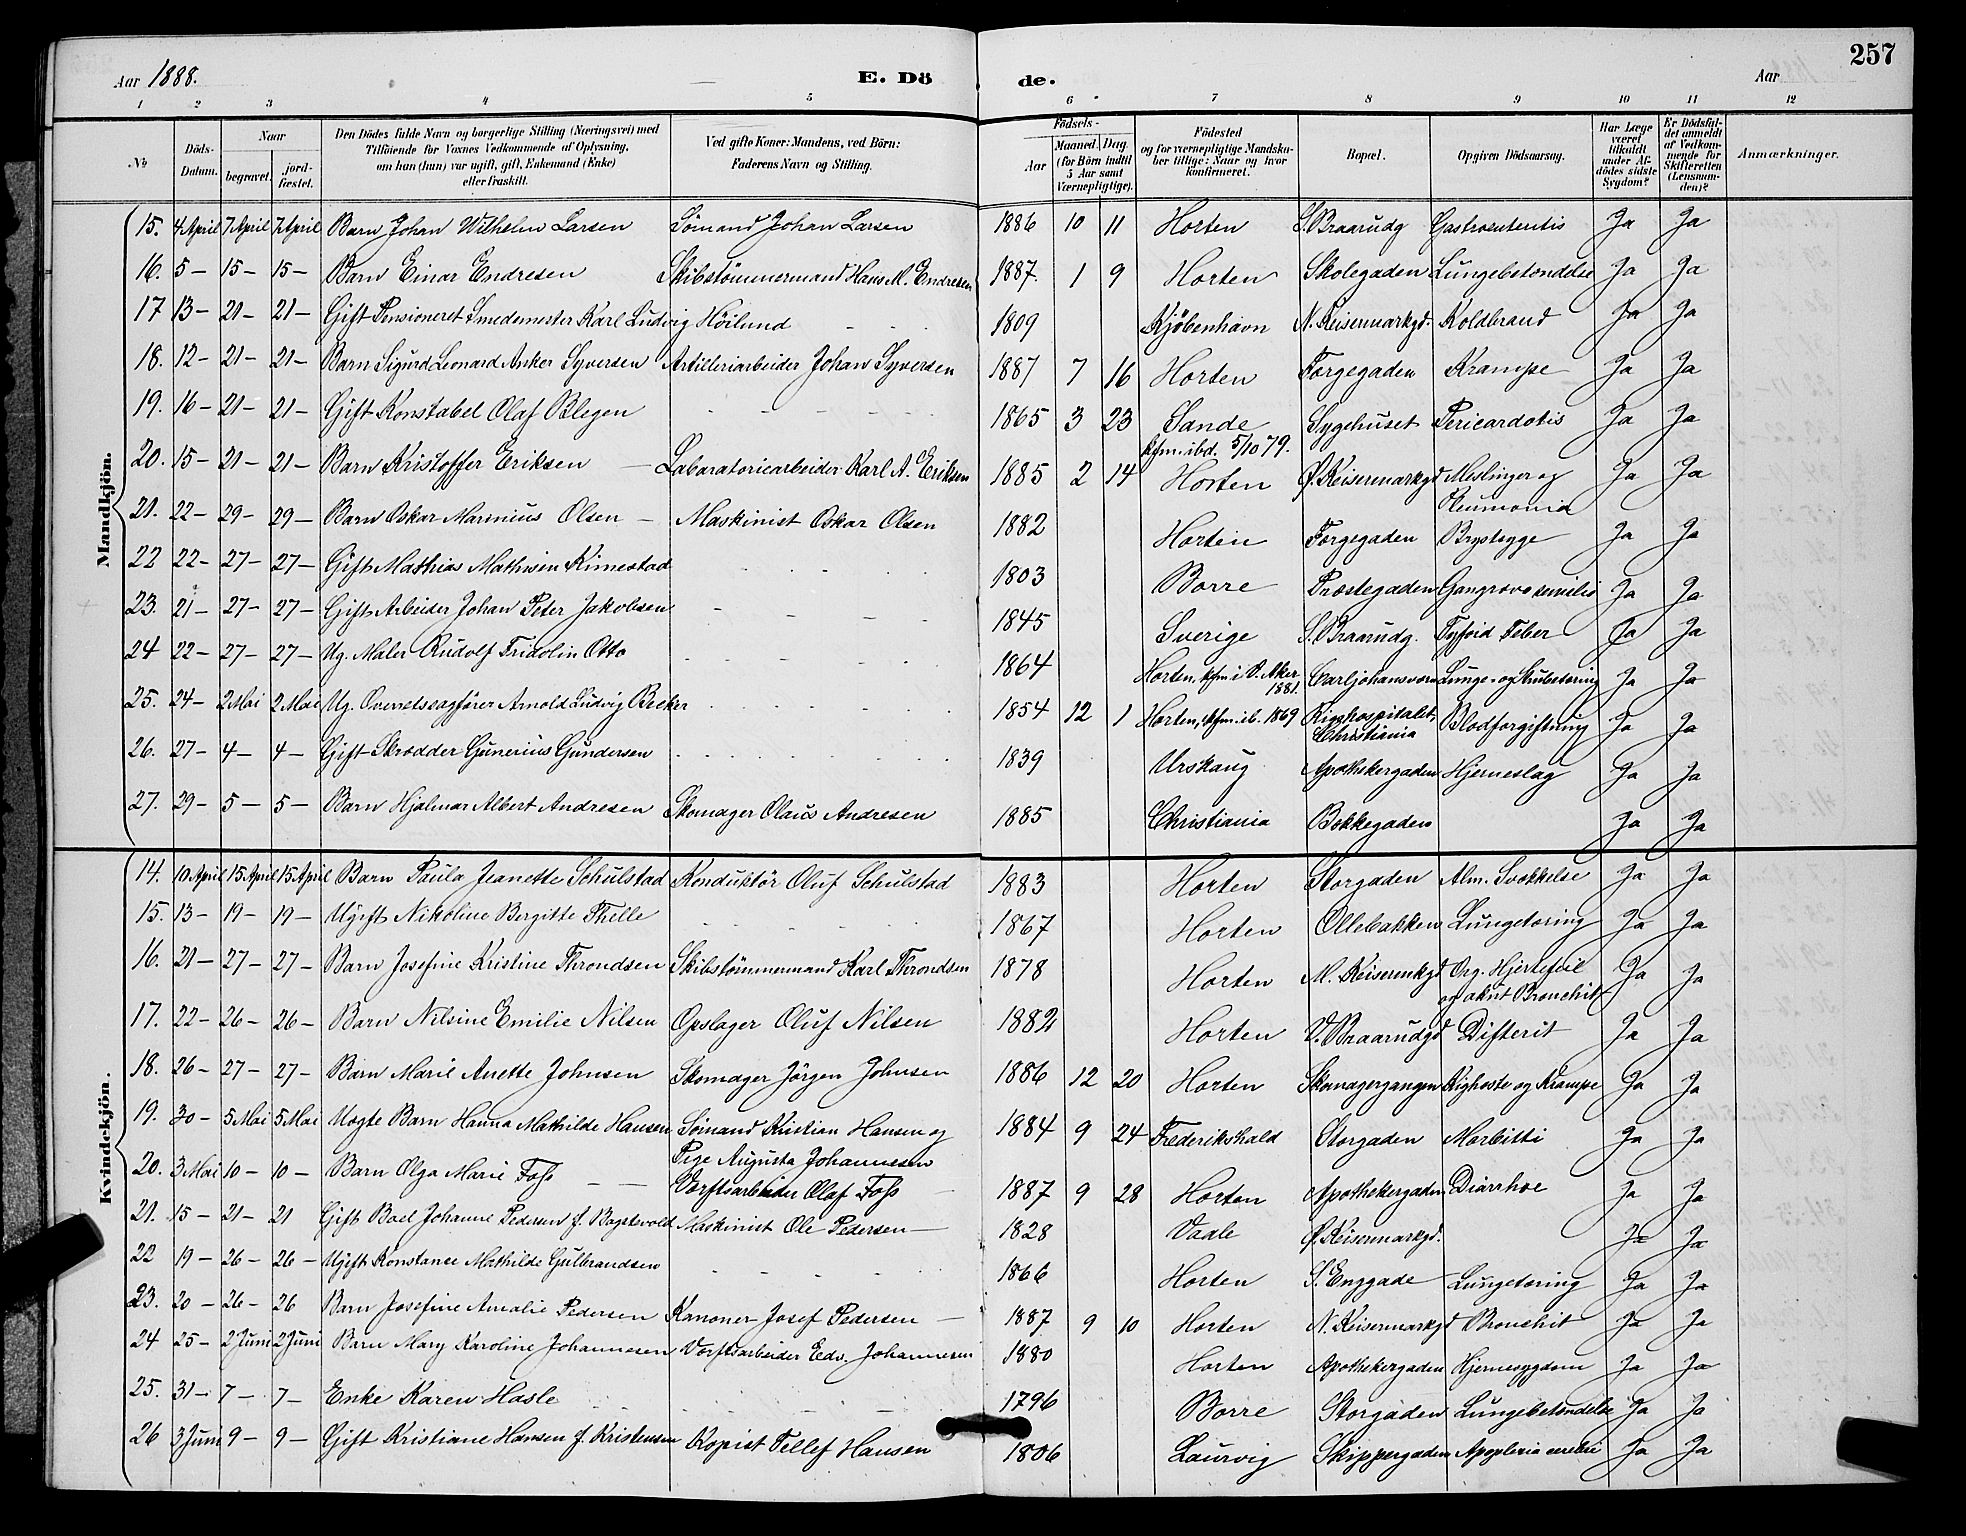 Aar 1888. E. Dö de. Aar 257
1 2 3 4 5 6 7 8 9 10 11 12
No Döds-Datum. Naar begravet. jord-fæstet. Den Dödes fulde Navn og borgerlige Stilling (Næringsvei) med Tilföiende for Voxnes Vedkommende af Oplysning, om han (hun) var ugift, gift, Enkemand (Enke) eller fraskilt. Ved gifte Koner: Mandens, ved Börn: Faderens Navn og Stilling. Födsels- Aar Maaned. Dag. (for Börn indtil 5 Aar samt Værnepligtige). Födested og for værnepligtige Mandskaber tillige: Naar og hvor konfirmeret. Bopæl. Opgiven Dödsaarsag. Har Læge været tilkaldt under Afdödes sidste Sygdom? Er Dödsfaldet anmeldt af Vedkommende for Skifteretten (Lensmanden)? Anmærkninger.
Mandkjön.
15. 4 April 7 April 7 April Barn Johan Wilhelm Larsen Sømand Johan Larsen 1886 10 11 Horten S. Braarudg Gastroenteritis Ja Ja
16. 5 – 15 – 15 – Barn Einar Endresen Skibstömmermand Hans M. Endresen 1887. 1 9 Horten Skolegaden Lungebetændelse Ja Ja
17 13 – 21 – 21 – Gift Pensioneret Smedemester Karl Ludvig Höilund 1809 Kjöbenhavn N. Keisermarkgd. Koldbrand Ja Ja
18. 12 – 21 – 21 – Barn Sigurd Leonard Anker Syversen Artilleriarbeider Johan Syversen 1887 7 16 Horten Torgegaden Krampe Ja Ja
19. 16 – 21 – 21 – Gift Konstabel Olaf Blegen 1865 3 23 Sande Sygehuset Pericarditis Ja Ja
kfm. ibd. 5/10 79.
20. 15 – 21 – 21 – Barn Kristoffer Eriksen – Labaratoriearbeider Karl A. Eriksen 1885 2 14 Horten Ø. Keisermarkgd Meslinger og Ja Ja
Pneumonia
21. 22 – 29 – 29 – Barn Oskar Marinius Olsen – Maskinist Oskar Olsen 1882 Horten Torgegaden Brystsyge Ja Ja
22 22 – 27 – 27 – Gift Mathias Mathisen Kimestad 1803 Borre Præstegaden Gangræna senilis Ja Ja
23. 21 – 27 – 27 – Gift Arbeider Johan Peter Jakobsen 1845 Sverige S. Braarudg. Tyfoid Feber Ja Ja
24 22 – 27 – 27 – Ug. Maler Rudolf Fridolin Otto 1864 Horten, kfm. i V. Aker 1881. Carljohansværn Lunge- og Strubetæring Ja Ja
25. 24 – 2 Mai 2 Mai Ug. Overretssagfører Arnold Ludvig Becker 1854 12 1 Horten, kfm. ib. 1869 Rigshospitalet, Christiania Blodforgiftning Ja Ja
26. 27 – 4 – 4 – Gift Skrædder Gunerius Gundersen 1839 Urskaug Apothekergaden Hjerneslag Ja Ja
27. 29 – 5 – 5 – Barn Hjalmar Albert Andresen Skomager Olaus Andresen 1885 Christiania Bekkegaden Ja Ja
Kvindekjön.
14. 10 April 15 April 15 April Barn Paula Jeanette Schulstad Konduktör Oluf Schulstad 1883 Horten Storgaden Alm. Svækkelse Ja Ja
15. 13 – 19 – 19 – Ugift Nikoline Bergitte Thelle 1867 Horten Ollebakken Lungetæring Ja Ja
16. 21 – 27 – 27 – Barn Josefine Kristine Throndsen Skibstömmermand Karl Throndsen 1878 Horten M. Keisermkgd Org. Hjertefeil Ja Ja
og akut Bronchit
17. 22 – 26 – 26 – Barn Nilsine Emilie Nilsen Opslager Oluf Nilsen 1882 Horten V. Braarudgd Difterit Ja Ja
18. 26 – 27 – 27 – Barn Marie Anette Johnsen Skomager Jörgen Johnsen 1886 12 20 Horten Skomagergangen Kighoste og Krampe Ja Ja
19. 30 – 5 Mai 5 Mai Uægte Barn Hanna Mathilde Hansen Sømand Kristian Hansen og 1884 9 24 Frederikshald Storgaden Morbilli Ja Ja
Pige Augusta Johannesen
20. 3 Mai 10 – 10 – Barn Olga Marie Foss – – Værftsarbeider Olaf Foss – 1887 9 28 Horten Apothekergaden Diarrhoe Ja Ja
21. 15 – 21 – 21 Gift Boel Johanne Pedersen f. Maskinist Ole Pedersen – 1828 Vaale Ø. Keisermarkgd. Ja Ja
22 19 – 26 – 26 – Ugift Konstance Mathilde Gulbrandsen 1866 Horten S. Enggade Lungetæring Ja Ja
23. 20 – 26 – 26 Barn Josefine Amalie Pedersen Kanoner Josef Pedersen – 1887 9 10 Horten N. Keisermarkgd Bronchit Ja Ja
24 25 – 2 Juni 2 Juni Barn Mary Karoline Johannesen Værftsarbeider Edv. Johannesen 1880 Horten Apothekergaden Hjernesygdom Ja Ja
25. 31 – 7 – 7 – Enke Karen Hasle 1796 Borre Storgaden Lungebetændelse Ja Ja
26 3 Juni 9 – 9 – Gift Kristiane Hansen f. Kristensen Kopist Tellef Hansen 1806 Laurvig Skippergaden Apoplexia cerebri Ja Ja